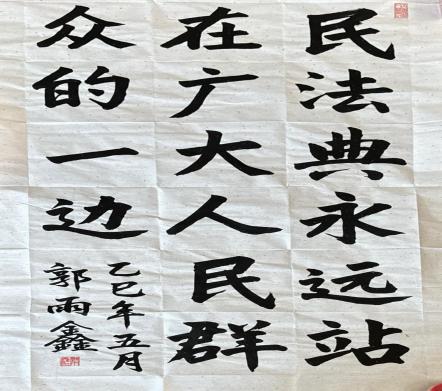 民法典永远站
在广大人民群
众的一边
乙巳年五月
郭雨鑫